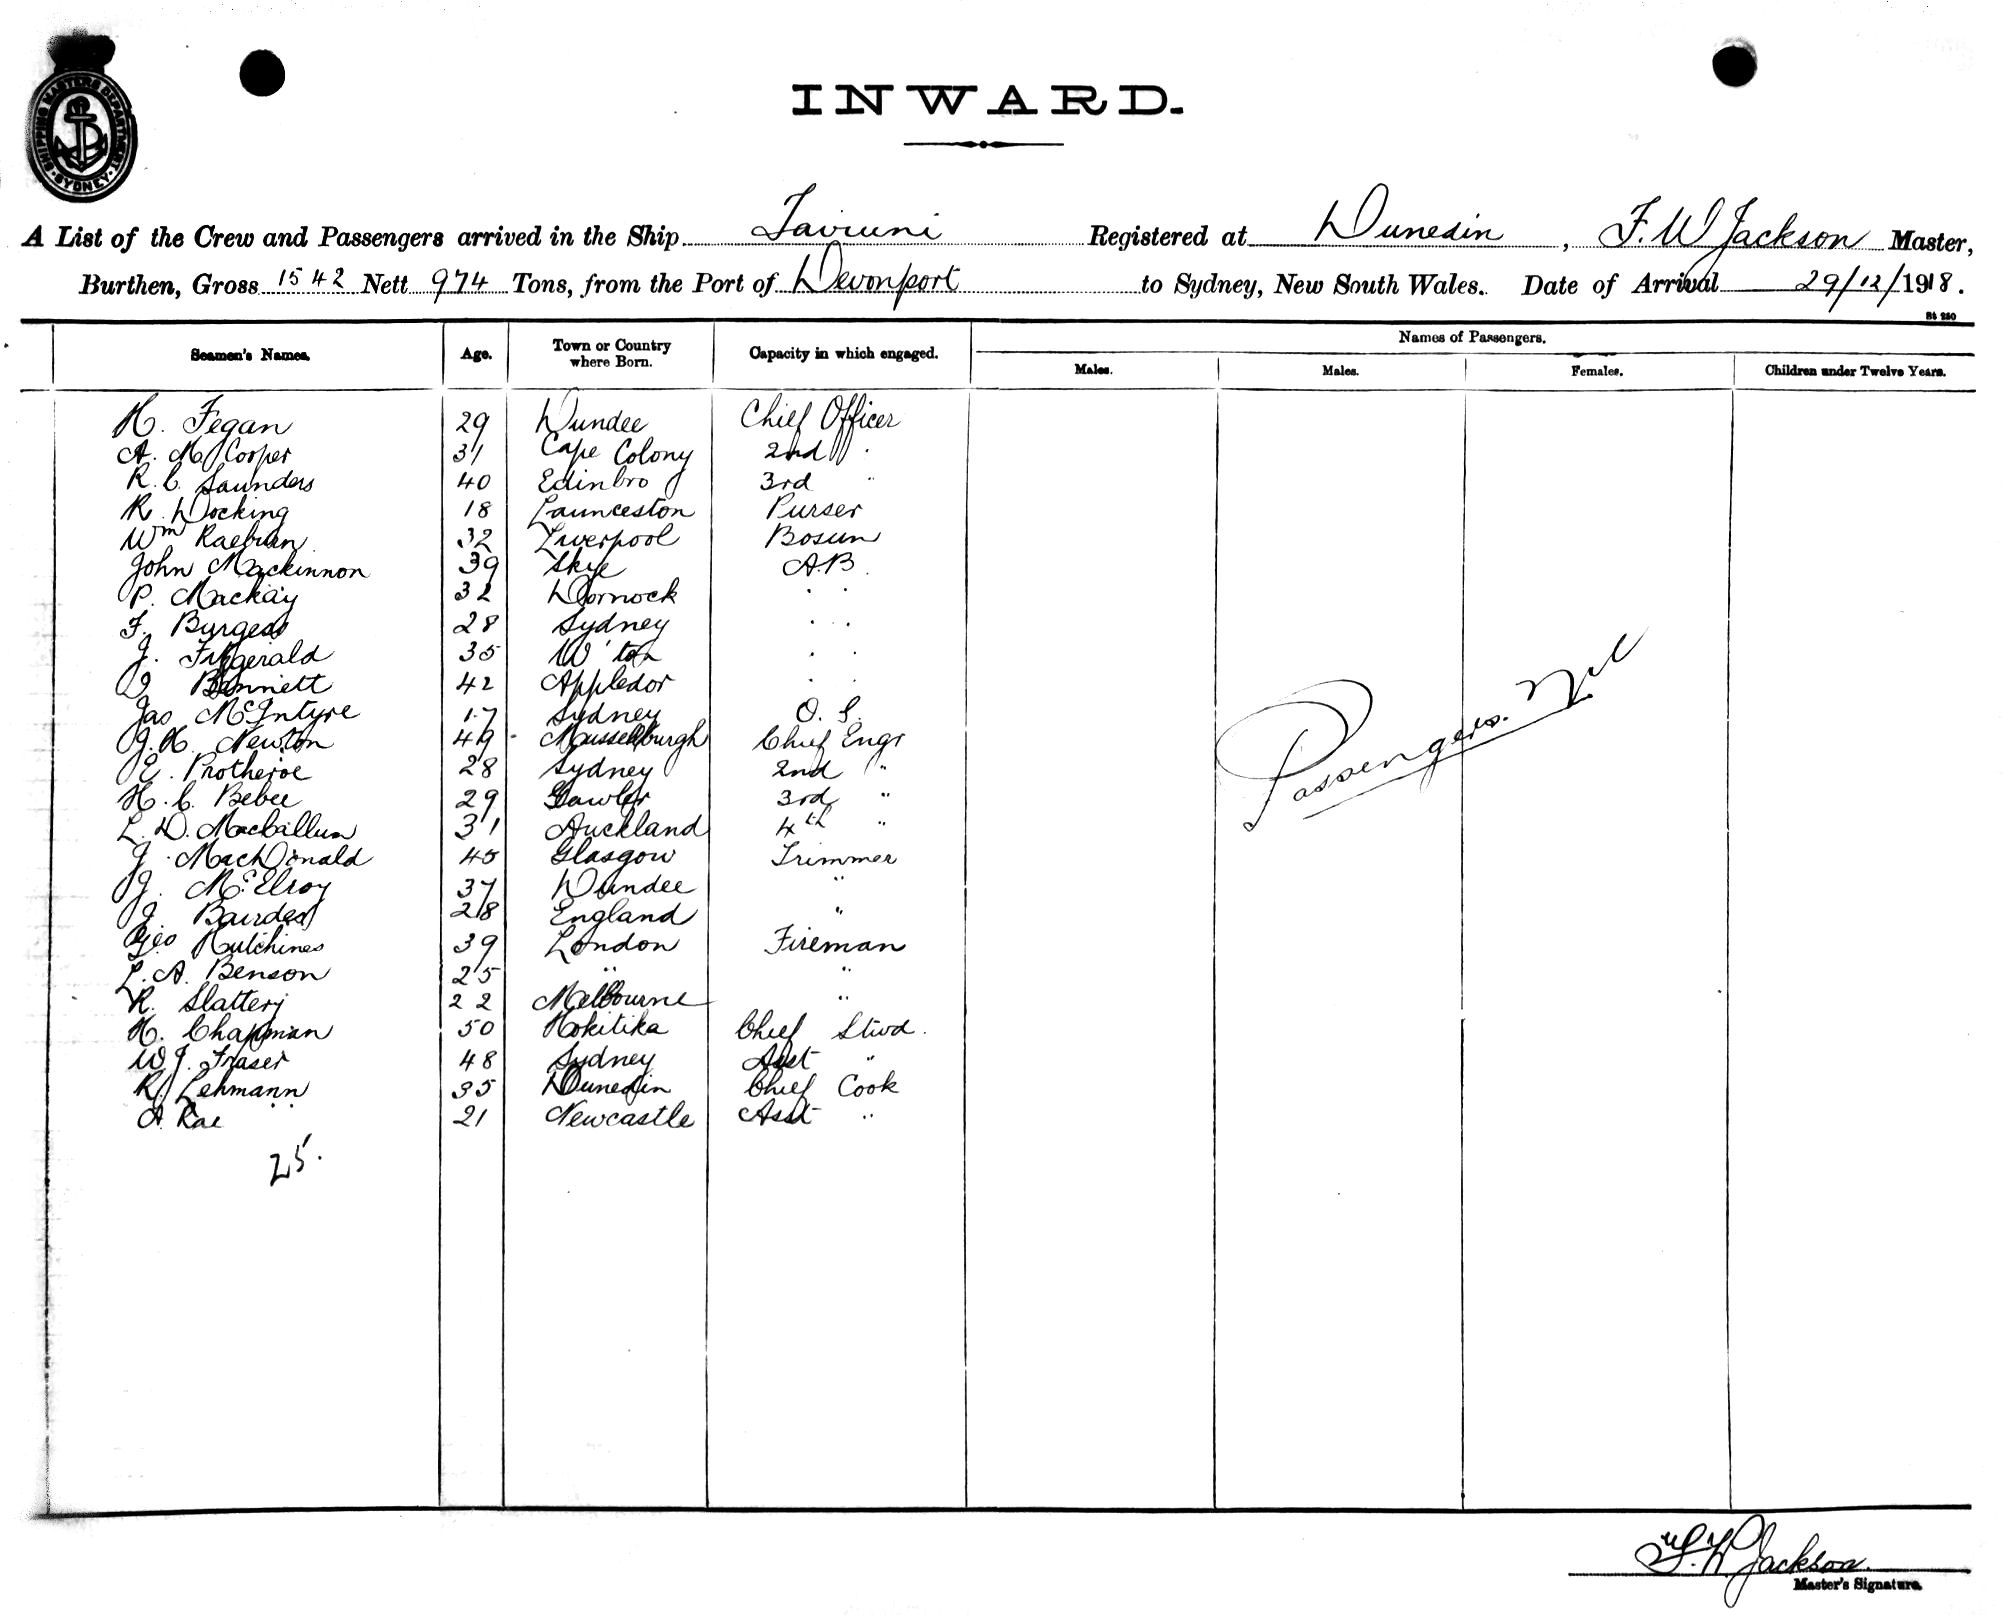 SHIPPING MASTERS DEPARTMENT SYDNEY
INWARD.
A List of the Crew and Passengers arrived in the Ship Taviuni Registered at Dunedin, F. W Jackson Master,
Burthen, Gross 1542 Nett 974 Tons, from the Port of Devonport to Sydney, New South Wales. Date of Arrival 29/12/1918.
St 280
Seamen's Names. Age. Town or Country where Born. Capacity in which engaged. Names of Passengers.
Males. Males. Females. Children under Twelve Years.
H. Fegan 29 Dundee Chief Officer
A. M Cooper 31 Cape Colony 2nd "
R. C. Saunders 40 Edinbro 3rd "
R. Docking 18 Launceston Purser
Wm Raeburn 32 Liverpool Bosun
John Mackinnon 39 Skye A.B.
P. Mackay 32 Dornock " "
F. Burgess 28 Sydney " "
J. Fitzgerald 35 W'ton " "
J Bennett 42 Appledor " "
Jas McIntyre 17 Sydney O. S.
J. H. Newton 49 Musselburgh Chief Engr
E. Protheroe 28 Sydney 2nd "
H. C. Bebee 29 Gawler 3rd "
L. D. MacCallum 31 Auckland 4th "
J. MacDonald 45 Glasgow Trimmer
J. McElroy 37 Dundee "
J. 28 England "
Geo Hutchines 39 London Fireman
L. A. Benson 25 " "
R. Slattery 22 Melbourne "
H. Chapman 50 Hokitika Chief Stwd.
W J. Fraser 48 Sydney Asst "
R. Lehmann 35 Dunedin Chief Cook
A. Rae 21 Newcastle Asst "
25.
Passengers. Nil
F. W. Jackson.
Master's Signature.